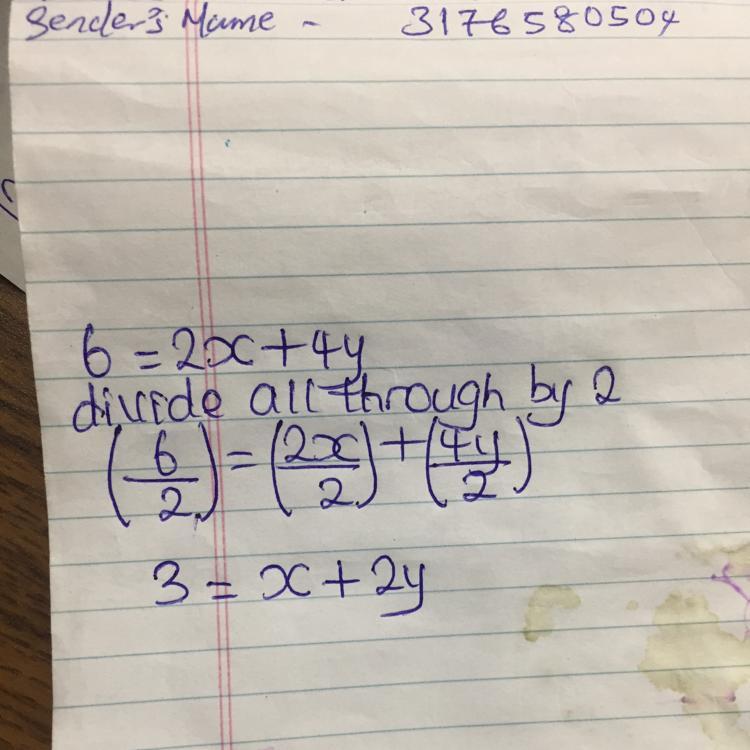 Sender's Name - 3176580504
6 = 2x + 4y
divide all through by 2
(6/2) = (2x/2) + (4y/2)
3 = x + 2y